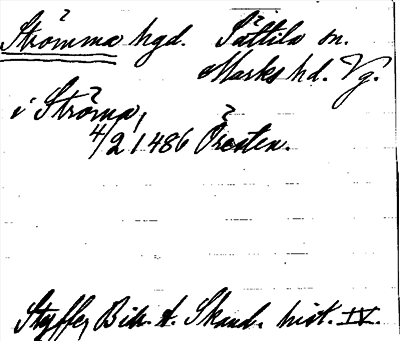 Strömma hgd. Sätila sn.
Marks hd. Vg.
i Ströma,
4/2 1486 Öresten.
Styffe, Bih. t. Skand. hist. IV.